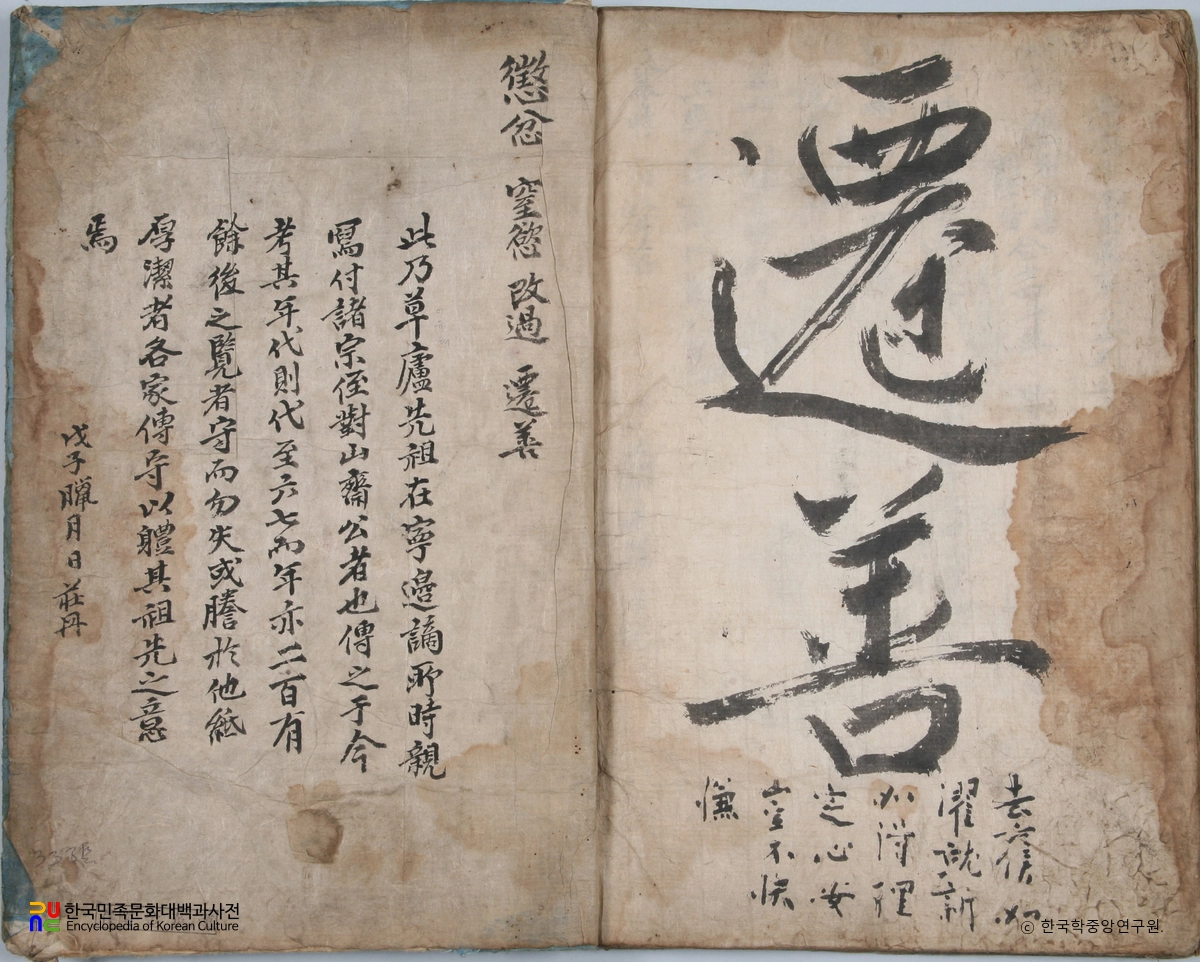 遷善
去舊
濯說新
必得理
定心安
豈不快
慊
懲忿 窒慾 改過 遷善
此乃草廬先祖在寧邊謫所時親
寫付諸宗侄對山齋公者也傳之于今
考其年代則代至六七而年亦二百有
餘後之覽者守而勿失或謄於他紙
厚潔者各家傳守以體其祖先之意
焉
戊子臘月日 莊丹
한국민족문화대백과사전
Encyclopedia of Korean Culture
ⓒ 한국학중앙연구원.